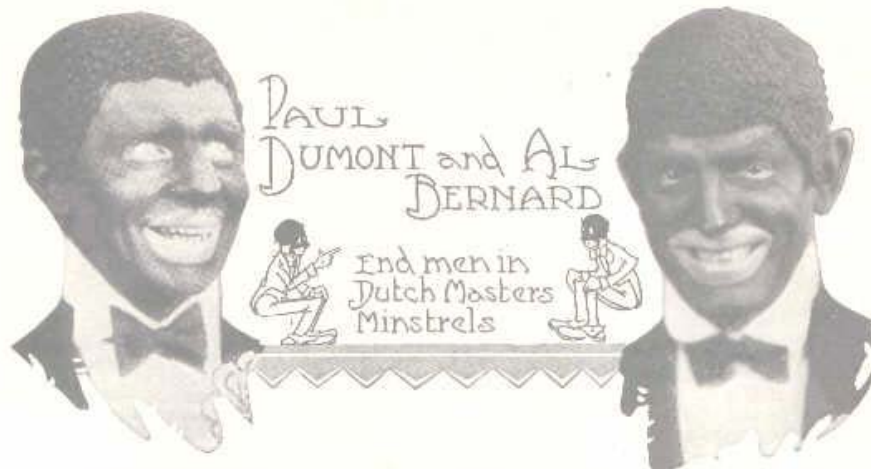 PAUL
DUMONT and AL
BERNARD
End men in
Dutch Masters
Minstrels